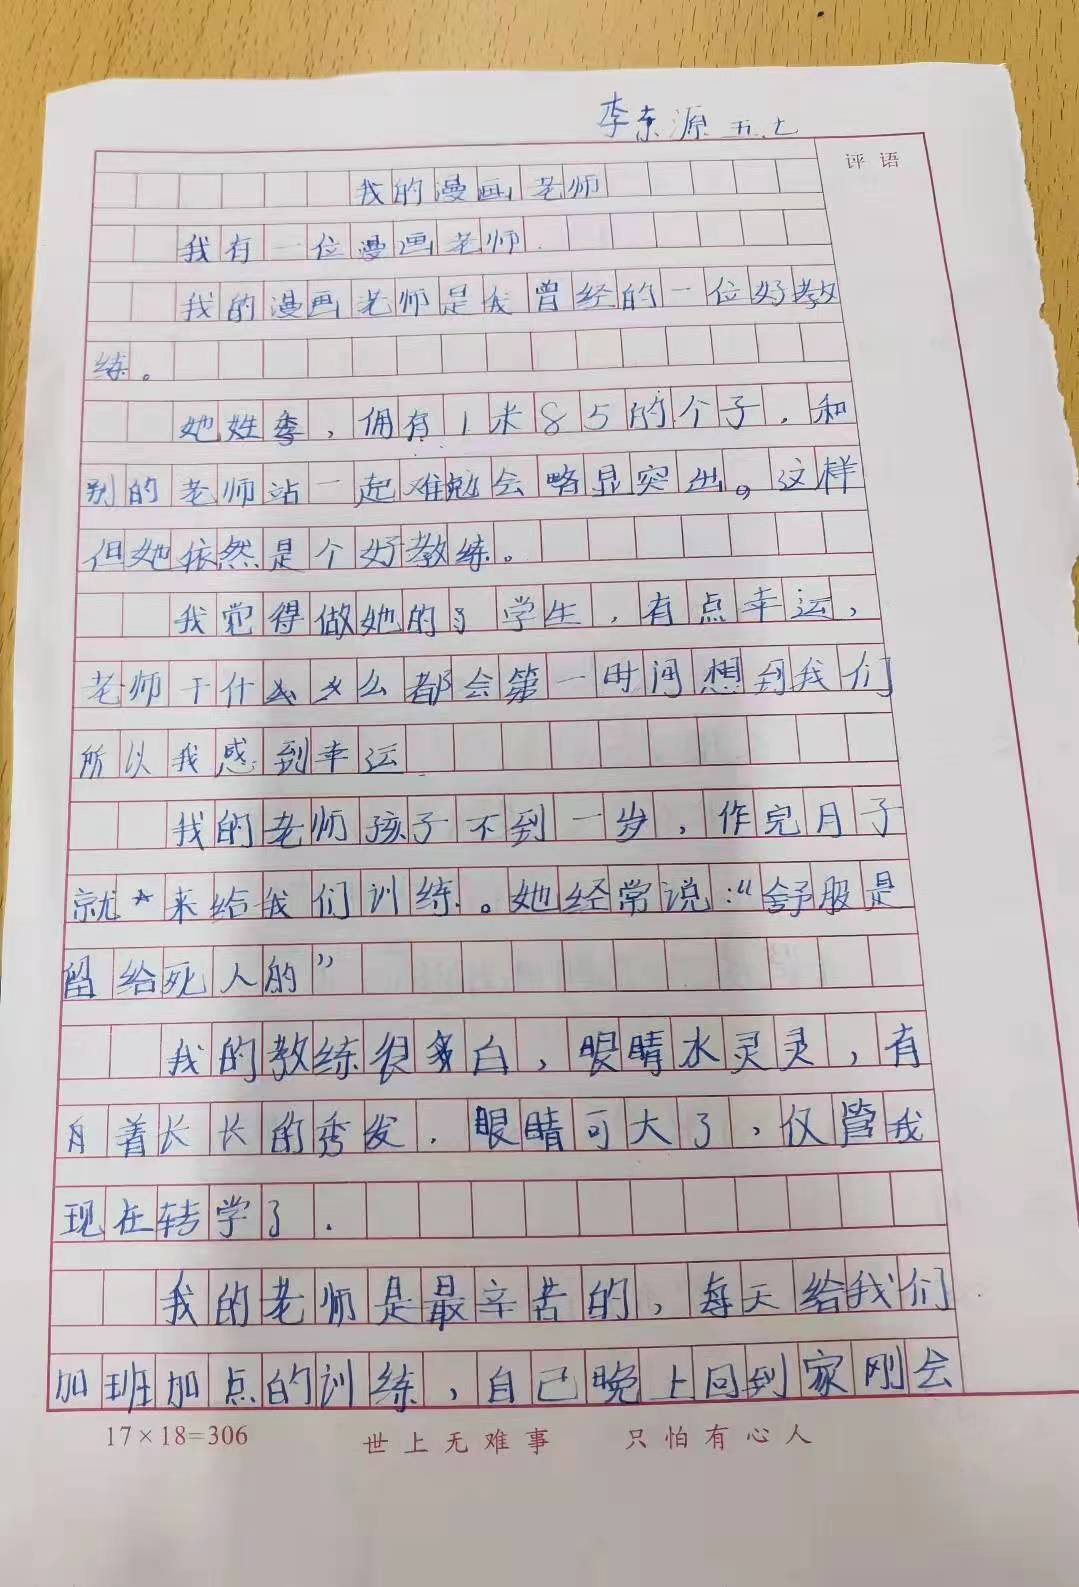 李东源 五.七
评语
我的漫画老师
我有一位漫画老师.
我的漫画老师是我曾经的一位好教
练。
她姓季,拥有1米85的个子.和
别的老师站一起难勉会略显突出。这样
但她依然是个好教练。
我觉得做她的学生,有点幸运,
老师干什么都会第一时间想到我们
所以我感到幸运
我的老师孩子不到一岁,作完月子
就来给我们训练。她经常说:“舒服是
留给死人的”
我的教练很白,眼睛水灵灵,有
着长长的秀发.眼睛可大了,仅管我
现在转学了.
我的老师是最辛苦的,每天给我们
加班加点的训练,自己晚上回到家刚会
17×18=306 世上无难事 只怕有心人